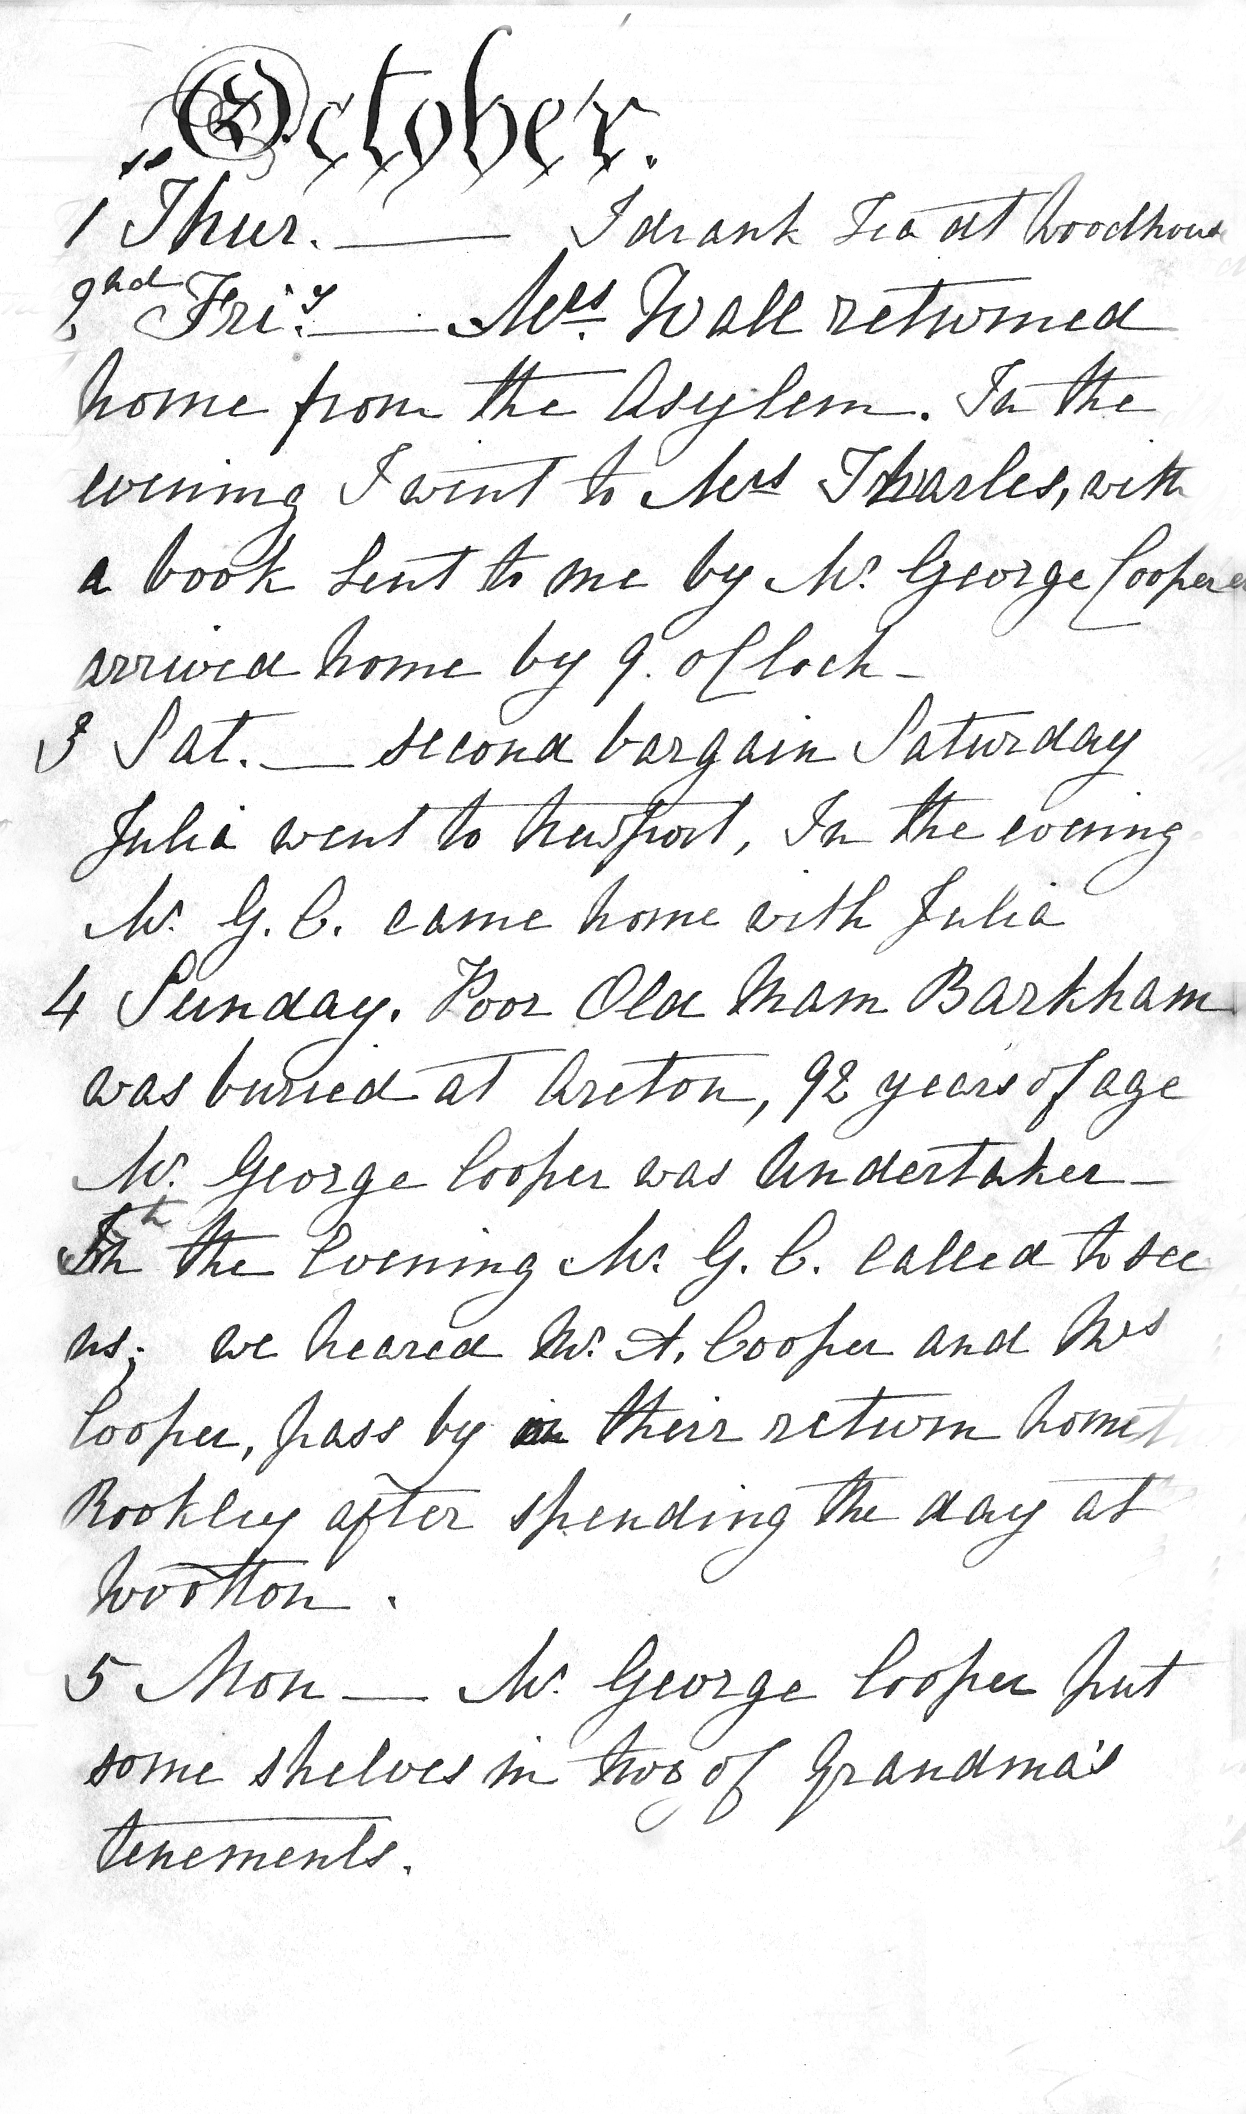 October.
1 Thur. — I drank Tea at Woodhouse
2nd Friy. — Mrs. Wall returned
home from the Asylem. In the
evening I went to Mrs Tharles, with
a book sent to me by Mr. George Cooper
arrived home by 9. oClock —
3 Sat. — second bargain Saturday
Julia went to Newport, In the evening
Mr. G. C. came home with Julia
4 Sunday. Poor Old Mam Barkham
was buried at Areton, 92 years of age
Mr. George Cooper was Undertaker —
In the Evening Mr. G. C. called to see
us; we heared Mr. A. Cooper and Mrs
Cooper, pass by on their return home
Rookley after spending the day at
Wootton.
5 Mon — Mr. George Cooper put
some shelves in two of Grandma's
tenements.